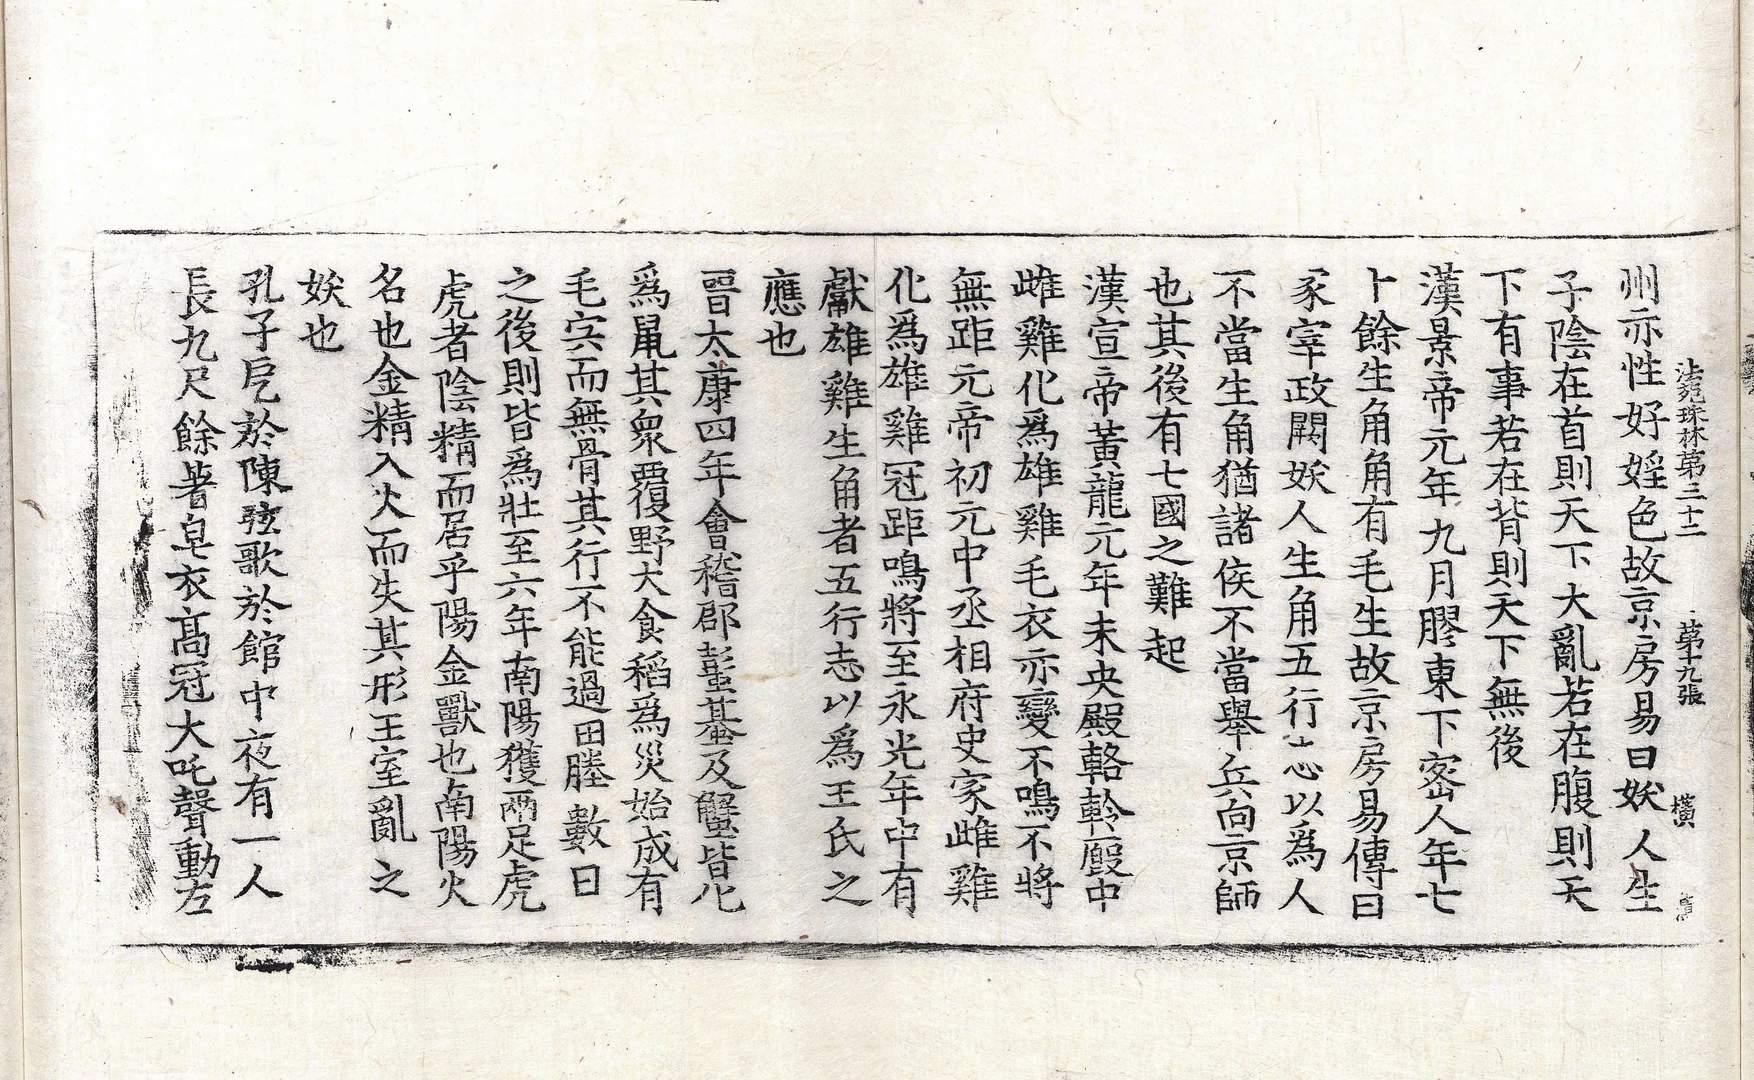 法苑珠林第三十二　第十九張　橫
州亦性好婬色故京房易曰妖人生
子陰在首則天下大亂若在腹則天
下有事若在背則天下無後
漢景帝元年九月膠東下密人年七
十餘生角角有毛生故京房易傳曰
冢宰政閼妖人生角五行志以爲人
不當生角猶諸侯不當舉兵向京師
也其後有七國之難起
漢宣帝黃龍元年未央殿輅軨廄中
雌雞化爲雄雞毛衣亦變不鳴不將
無距元帝初元中丞相府史家雌雞
化爲雄雞冠距鳴將至永光年中有
獻雄雞生角者五行志以爲王氏之
應也
晉太康四年會稽郡彭蜞及蟹皆化
爲鼠其衆覆野大食稻爲災始成有
毛宍而無骨其行不能過田塍數日
之後則皆爲壯至六年南陽獲兩足虎
虎者陰精而居乎陽金獸也南陽火
名也金精入火而失其形王室亂之
妖也
孔子戹於陳弦歌於館中夜有一人
長九尺餘著皂衣高冠大吒聲動左